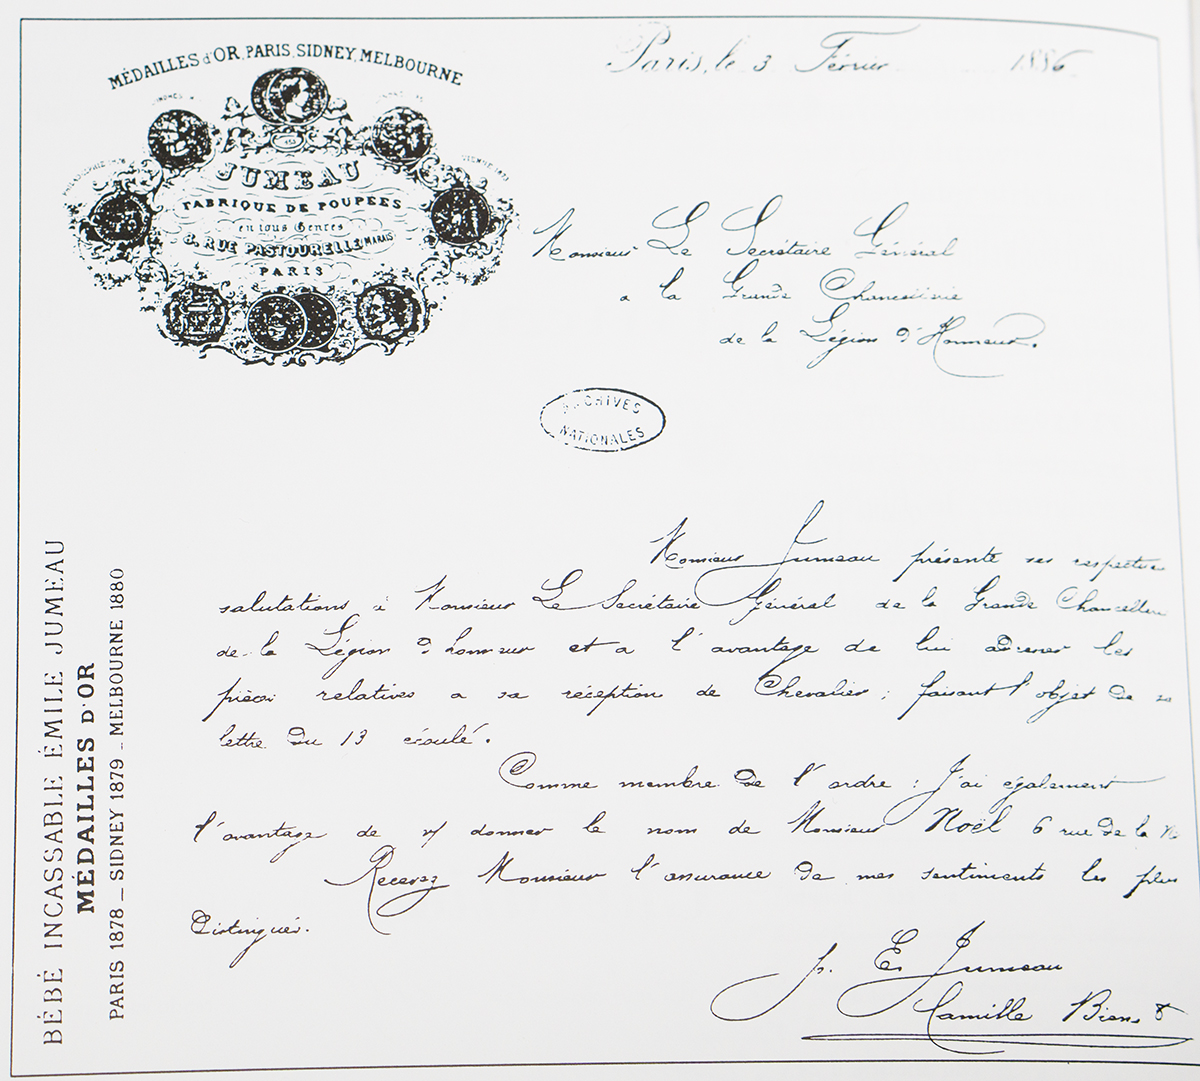 MÉDAILLES d'OR, PARIS, SIDNEY, MELBOURNE
JUMEAU
FABRIQUE DE POUPÉES
en tous Genres
8, RUE PASTOURELLE MARAIS
PARIS
Paris, le 3 Février 1886
Monsieur Le Secrétaire Général
a la Grande Chancellerie
de la Légion d'Honneur.
ARCHIVES
NATIONALES
Monsieur Jumeau présente ses
salutations à Monsieur Le Secrétaire Général de la Grande
de la Légion d'honneur et a l'avantage de lui adresser les
pièces relatives a sa réception de Chevalier; faisant l'objet de
lettre du 13 écoulé.
Comme membre de l'ordre: J'ai également
l'avantage de v/ donner le nom de Monsieur Noël 6 rue de la
Recevez Monsieur l'assurance de mes sentiments les plus
Distingués.
p. E. Jumeau
Camille
BÉBÉ INCASSABLE ÉMILE JUMEAU
MÉDAILLES D'OR
PARIS 1878 _ SIDNEY 1879 _ MELBOURNE 1880